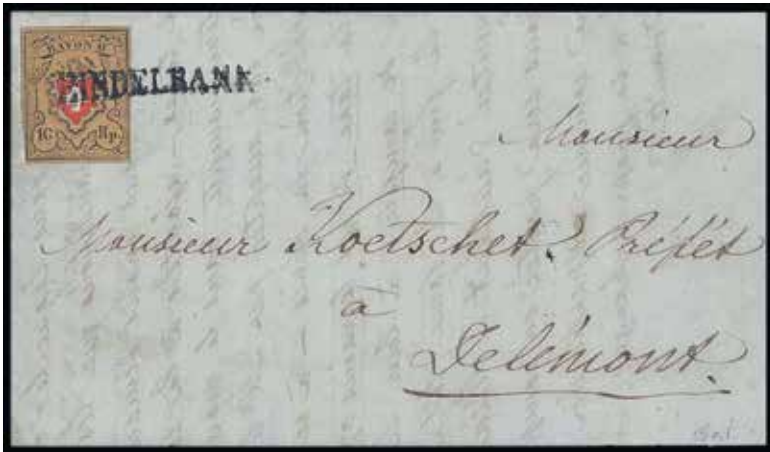 RAYON II
HINDELBANK
10 Rp.
Monsieur
Monsieur Koetschet. Préfét
à
Delémont.